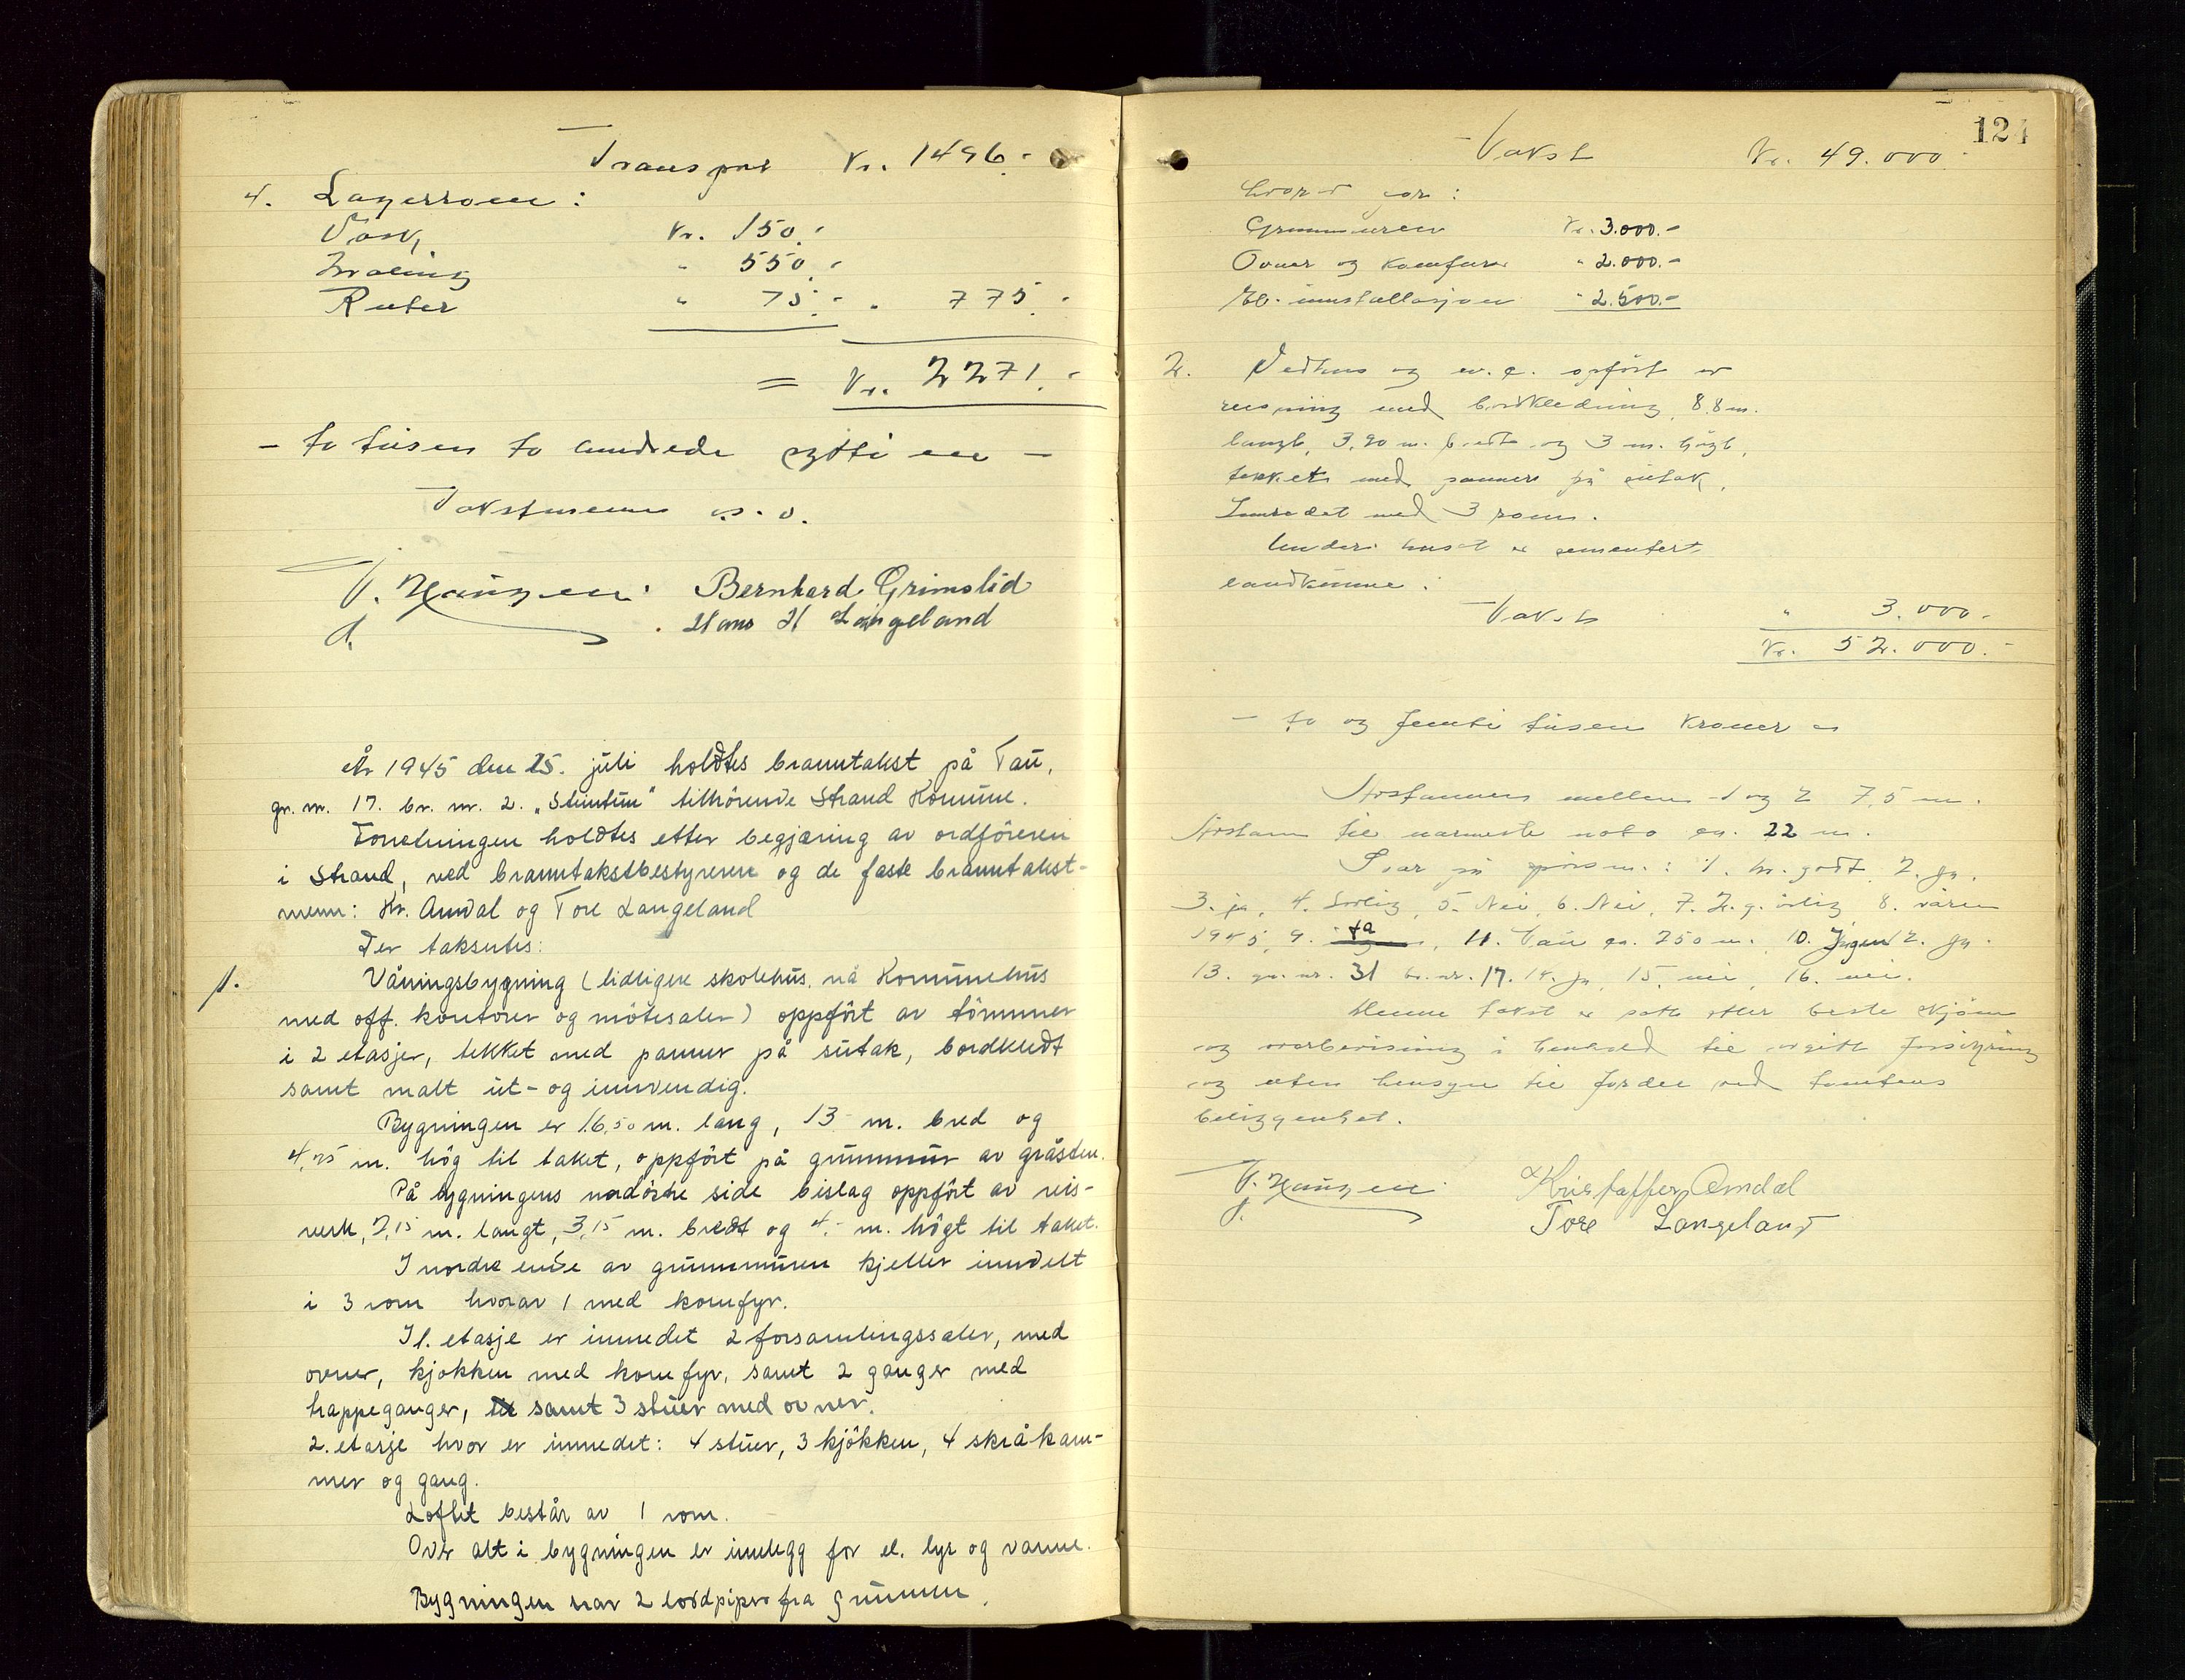 Transport Kr. 1496.-
4. Lagerrom:
Vask, Kr. 150.-
Maling " 550.-
Ruter " 75.- " 775.-
= Kr. 2271.-
- to tusen to hundrede sytti en -
Takstmenn u.s.o.
Bernhard Grimslid
Hans H Langeland
År 1945 den 25. juli holdtes branntakst på Tau,
gr. nr. 17. br. nr. 2. "Steintun" tilhörende Strand Komune.
Foretningen holdtes etter begjæring av ordföreren
i Strand, ved branntakstbestyreren og de faste branntakst-
menn: Kr. Amdal og Tore Langeland
Der taksertes:
1. Våningsbygning (tidligere skolehus, nå Kommunehus
med off. kontorer og mötesaler) oppfört av tömmer
i 2 etasjer, tekket med panner på sutak, bordkledt
samt malt ut- og innvendig.
Bygningen er 16,50 m. lang, 13 - m. bred og
4,75 m. hög til taket, oppfört på grunnmur av gråsten.
På bygningens nordöstre side bislag oppfört av reis-
verk, 7,15 m. langt, 3,15 m. bredt og 4.- m. högt til taket.
I nordre ende av grunnmuren kjeller inndelt
i 3 rom hvorav 1 med komfyr.
I 1. etasje er innredet 2 forsamlingssaler, med
ovner, kjökken med komfyr, samt 2 ganger med
trappeganger, samt 3 stuer med ovner.
2. etasje hvor er innredet: 4 stuer, 3 kjökken, 4 skråkam-
mer og gang.
Loftet består av 1 rom.
Over alt i bygningen er innlegg for el. lys og varme.
Bygningen har 2 lordpiper fra grunnen.
124
Takst Kr. 49.000.-
hvorav for:
Grunnmuren Kr. 3.000.-
Ovner og komfurer " 2.000.-
El. innstallasjon " 2.500.-
2. Vedhus og w.c. opfört av
reisning med bordkledning, 8.8 m.
langt, 3,90 m. bredt og 3 m. högt,
tekket med panner på sutak.
Innredet med 3 rom.
Under huset er sementert
landkumme.
Takst " 3.000.-
Kr. 52.000.-
- to og femti tusen kroner -
Avstanden mellem 1 og 2 7,5 m.
Avstand til nærmeste nabo ca. 22 m.
Svar på spörsm.: 1. br. godt, 2. ja.
3. ja, 4. Sorlig, 5. Nei, 6. Nei, 7. 2.g. årlig, 8. våren
1945, 9. ja, 11. Tau ca. 250 m. 10. Ingen 12. Ja.
13. gr. nr. 31 br. nr. 17. 14. ja, 15. nei, 16. nei.
Denne takst er satt etter beste skjönn
og overbevisning i henhold til avgitt forsikring
og uten hensyn til fordel ved tomtens
beliggenhet.
Kristoffer Amdal
Tore Langeland